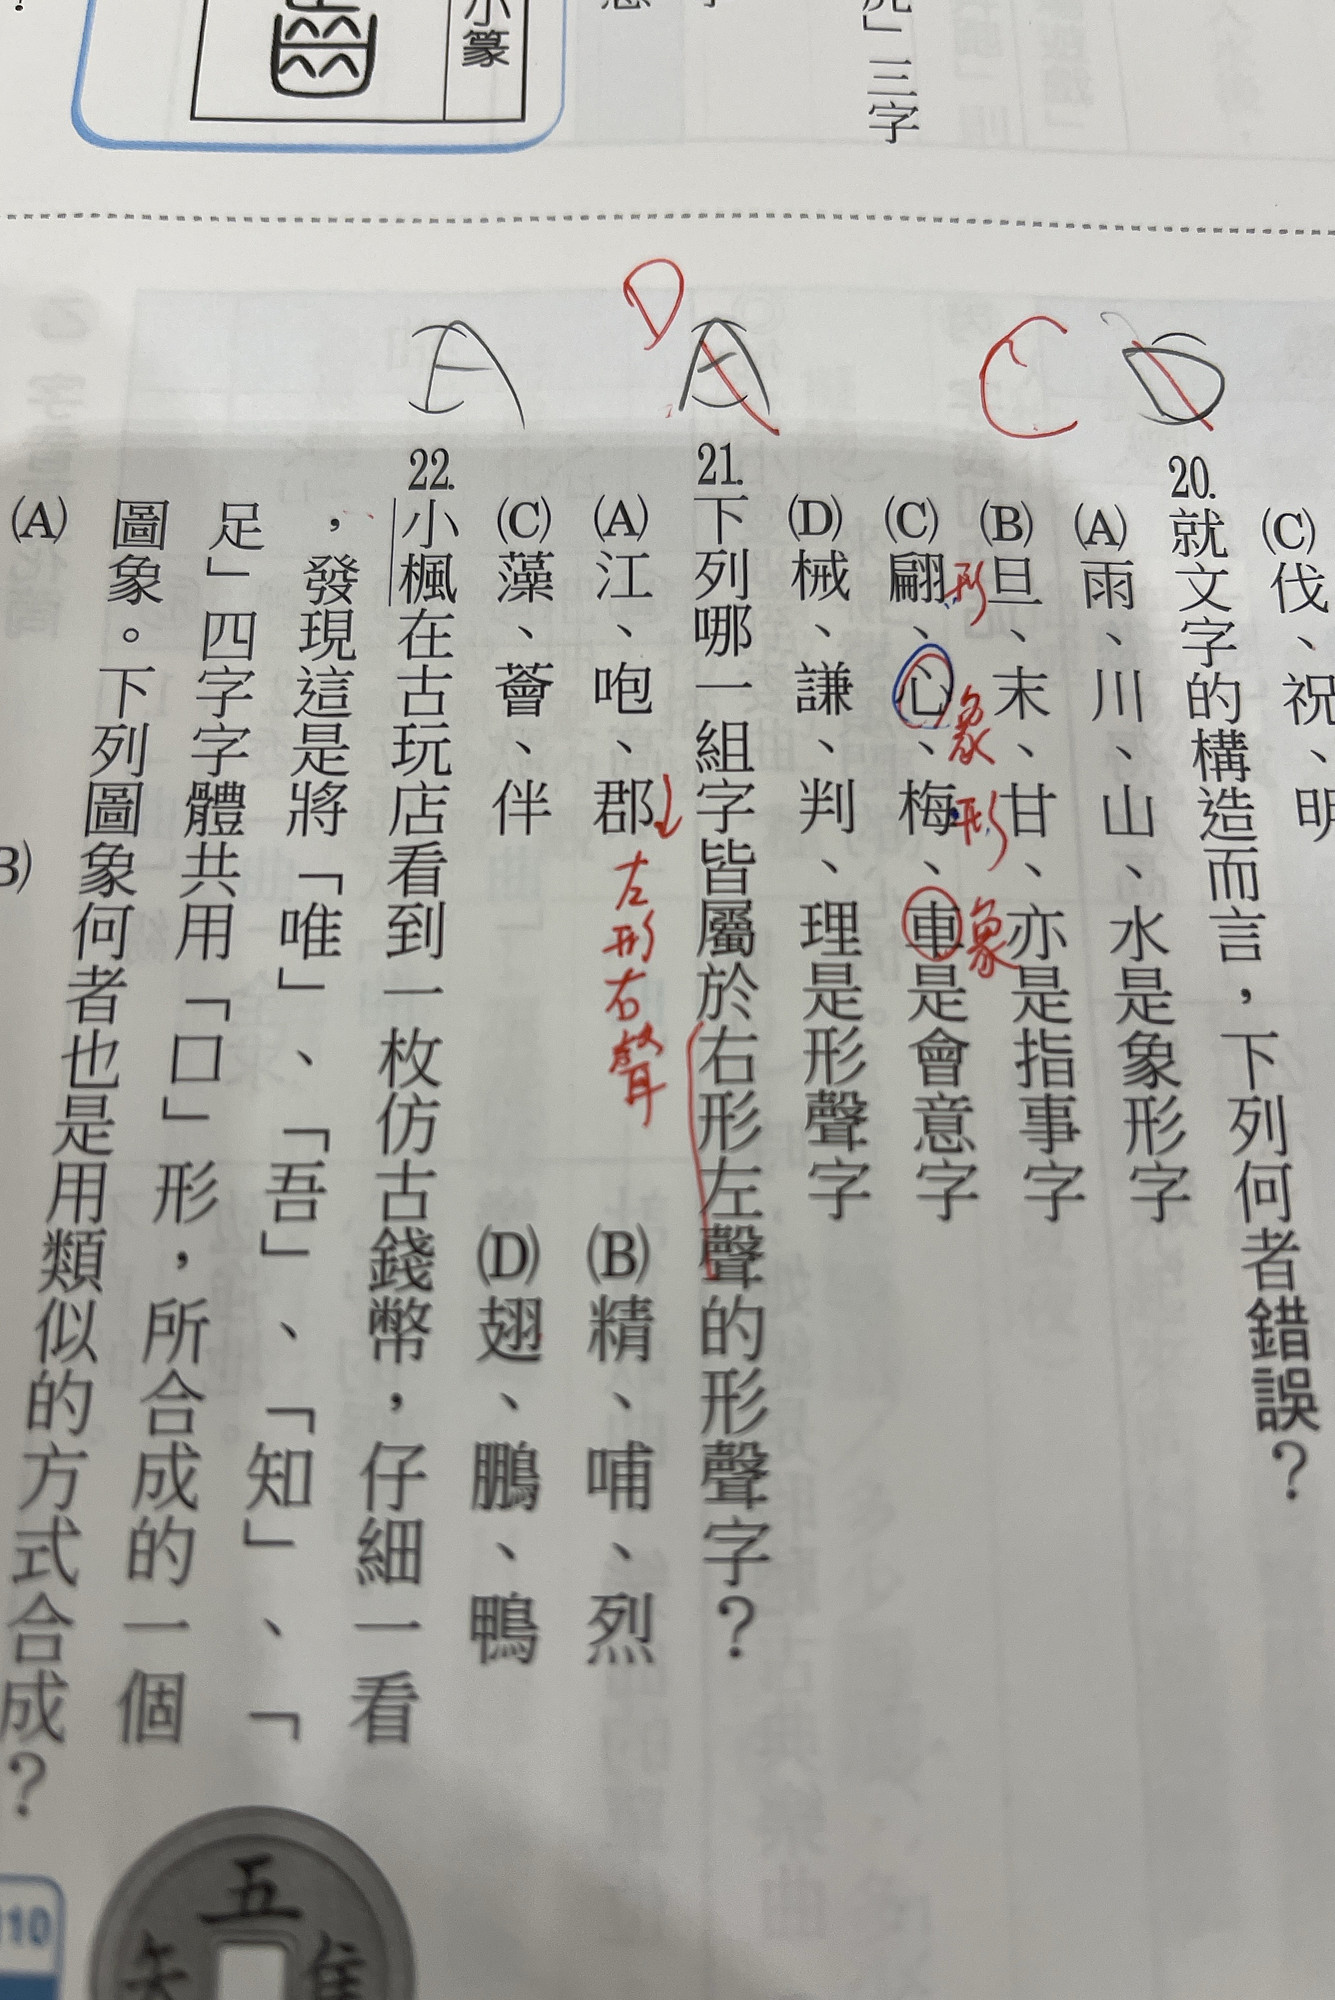 虎」三字
小篆
(C)伐、祝、明
20.就文字的構造而言，下列何者錯誤？
(A)雨、川、山、水是象形字
(B)旦、末、甘、亦是指事字
(C)翩、心、梅、車是會意字
形
象
形
象
(D)械、謙、判、理是形聲字
C
D
21.下列哪一組字皆屬於右形左聲的形聲字？
(A)江、咆、郡 (B)精、哺、烈
左形右聲
(C)藻、薈、伴 (D)翅、鵬、鴨
D
A
22.小楓在古玩店看到一枚仿古錢幣，仔細一看
，發現這是將「唯」、「吾」、「知」、「
足」四字字體共用「口」形，所合成的一個
圖象。下列圖象何者也是用類似的方式合成？
A
(A)
五
矢
隹
110